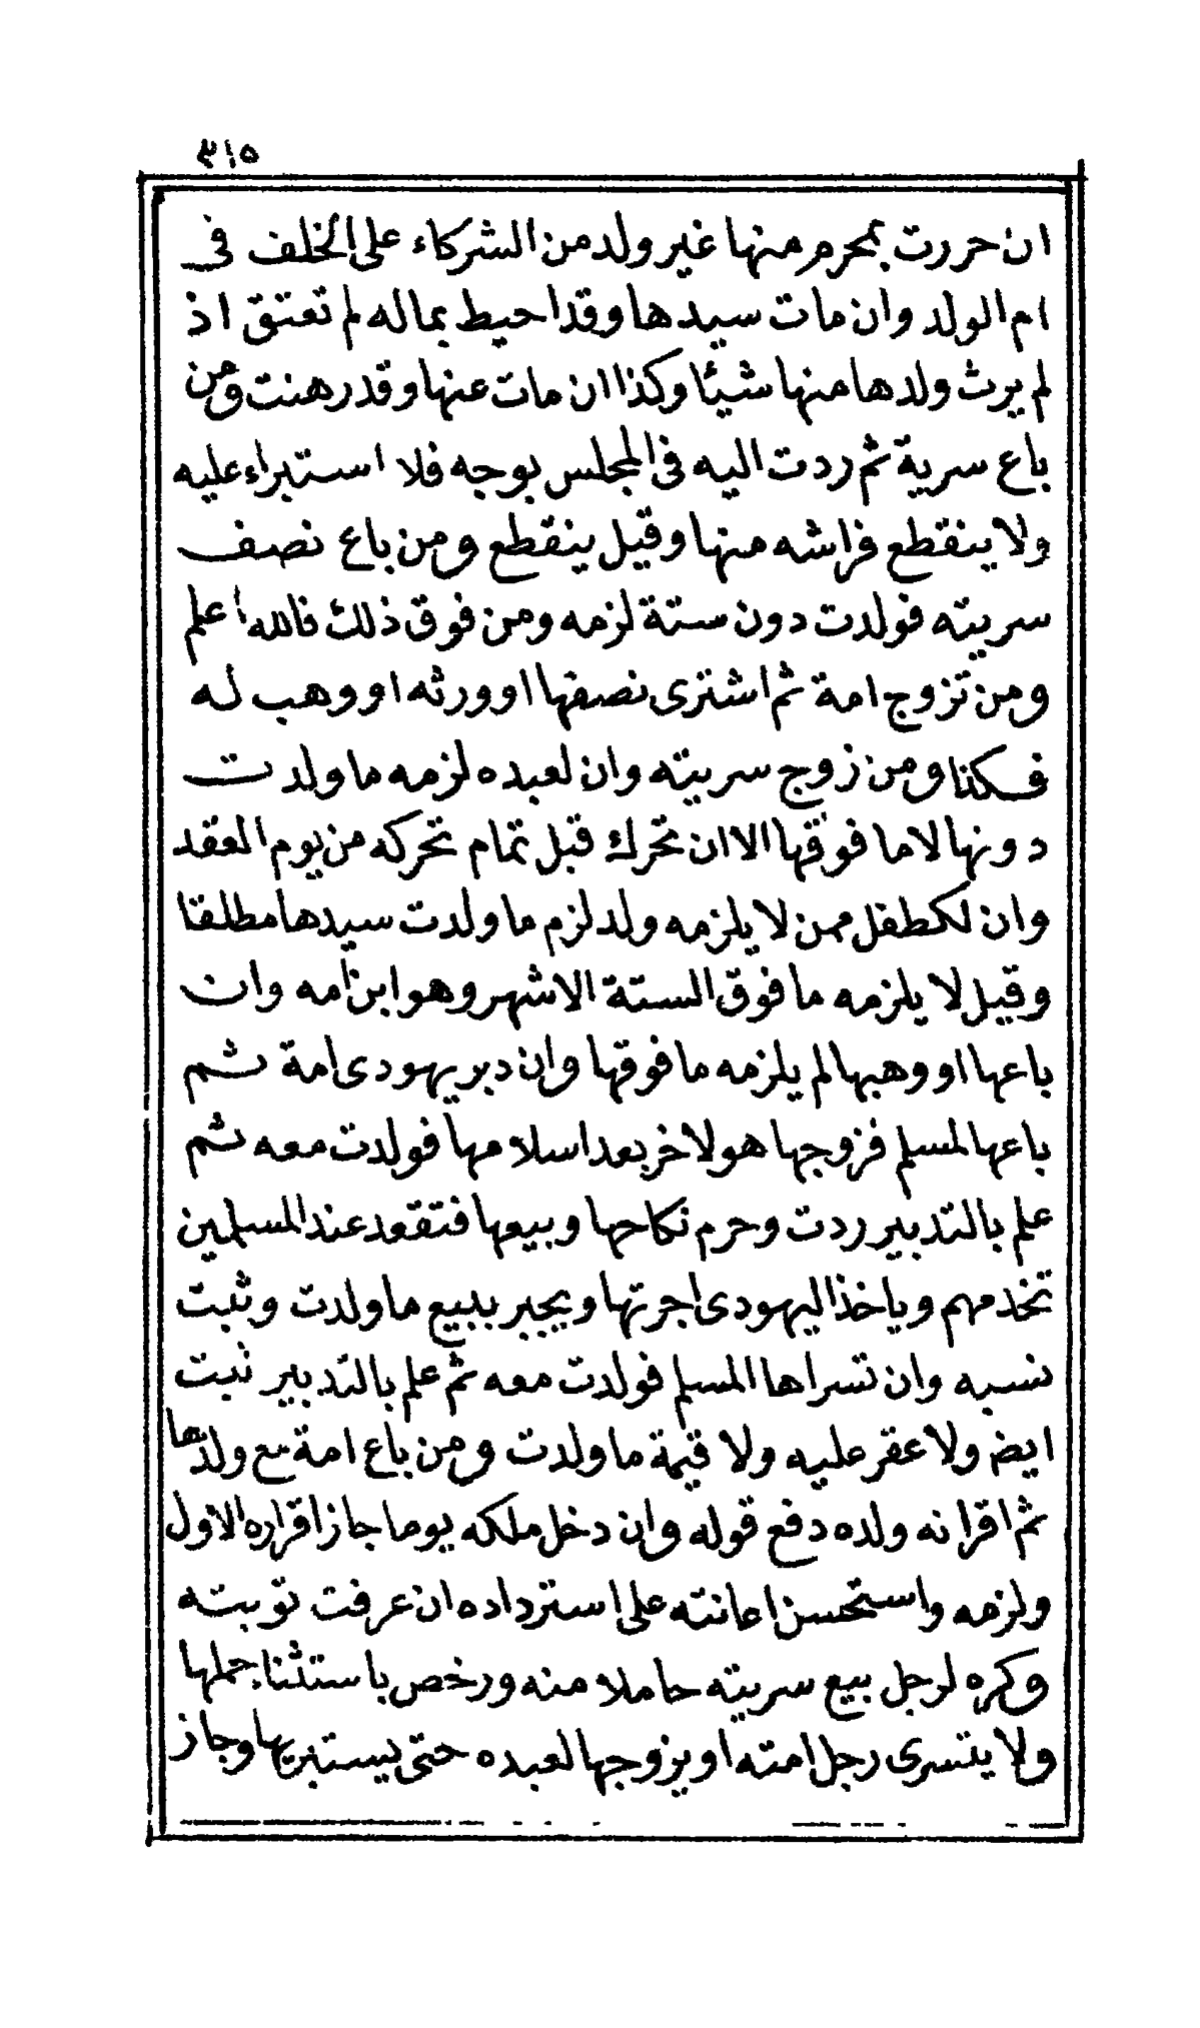 ٣١٥
ان حررت بمحرم منها غير ولد من الشركاء على الخلف فى
ام الولد وان مات سيدها وقد احيط بماله لم تعتق اذ
لم يرث ولدها منها شيئا وكذا ان مات عنها وقد رهنت ومن
باع سرية ثم ردت اليه فى المجلس بوجه فلا استبراء عليه
ولا ينقطع فراشه منها وقيل ينقطع ومن باع نصف
سريته فولدت دون ستة لزمه ومن فوق ذلك فالله اعلم
ومن تزوج امة ثم اشترى نصفها او ورثه او وهب له
فكذا ومن زوج سريته وان لعبده لزمه ما ولدت
دونها لا ما فوقها الا ان تحرك قبل تمام تحركه من يوم العقد
وان لكطفل ممن لا يلزمه ولد لزم ما ولدت سيدها مطلقا
وقيل لا يلزمه ما فوق الستة الاشهر وهو ابن امه وان
باعها او وهبها لم يلزمه ما فوقها وان دبر يهودى امة ثم
باعها لمسلم فزوجها هو لاخر بعد اسلامها فولدت معه ثم
علم بالتدبير ردت وحرم نكاحها وبيعها فتقعد عند المسلمين
تخدمهم وياخذ اليهودى اجرتها ويجبر ببيع ما ولدت وثبت
نسبه وان تسراها المسلم فولدت معه ثم علم بالتدبير ثبت
ايض ولا عقر عليه ولا قيمة ما ولدت ومن باع امة مع ولدها
ثم اقر انه ولده دفع قوله وان دخل ملكه يوما جاز اقراره الاول
ولزمه واستحسن اعانته على استرداده ان عرفت توبته
وكره لرجل بيع سريته حاملا منه ورخص باستثناء حملها
ولا يتسرى رجل امته او يزوجها لعبده حتى يستبريها وجاز